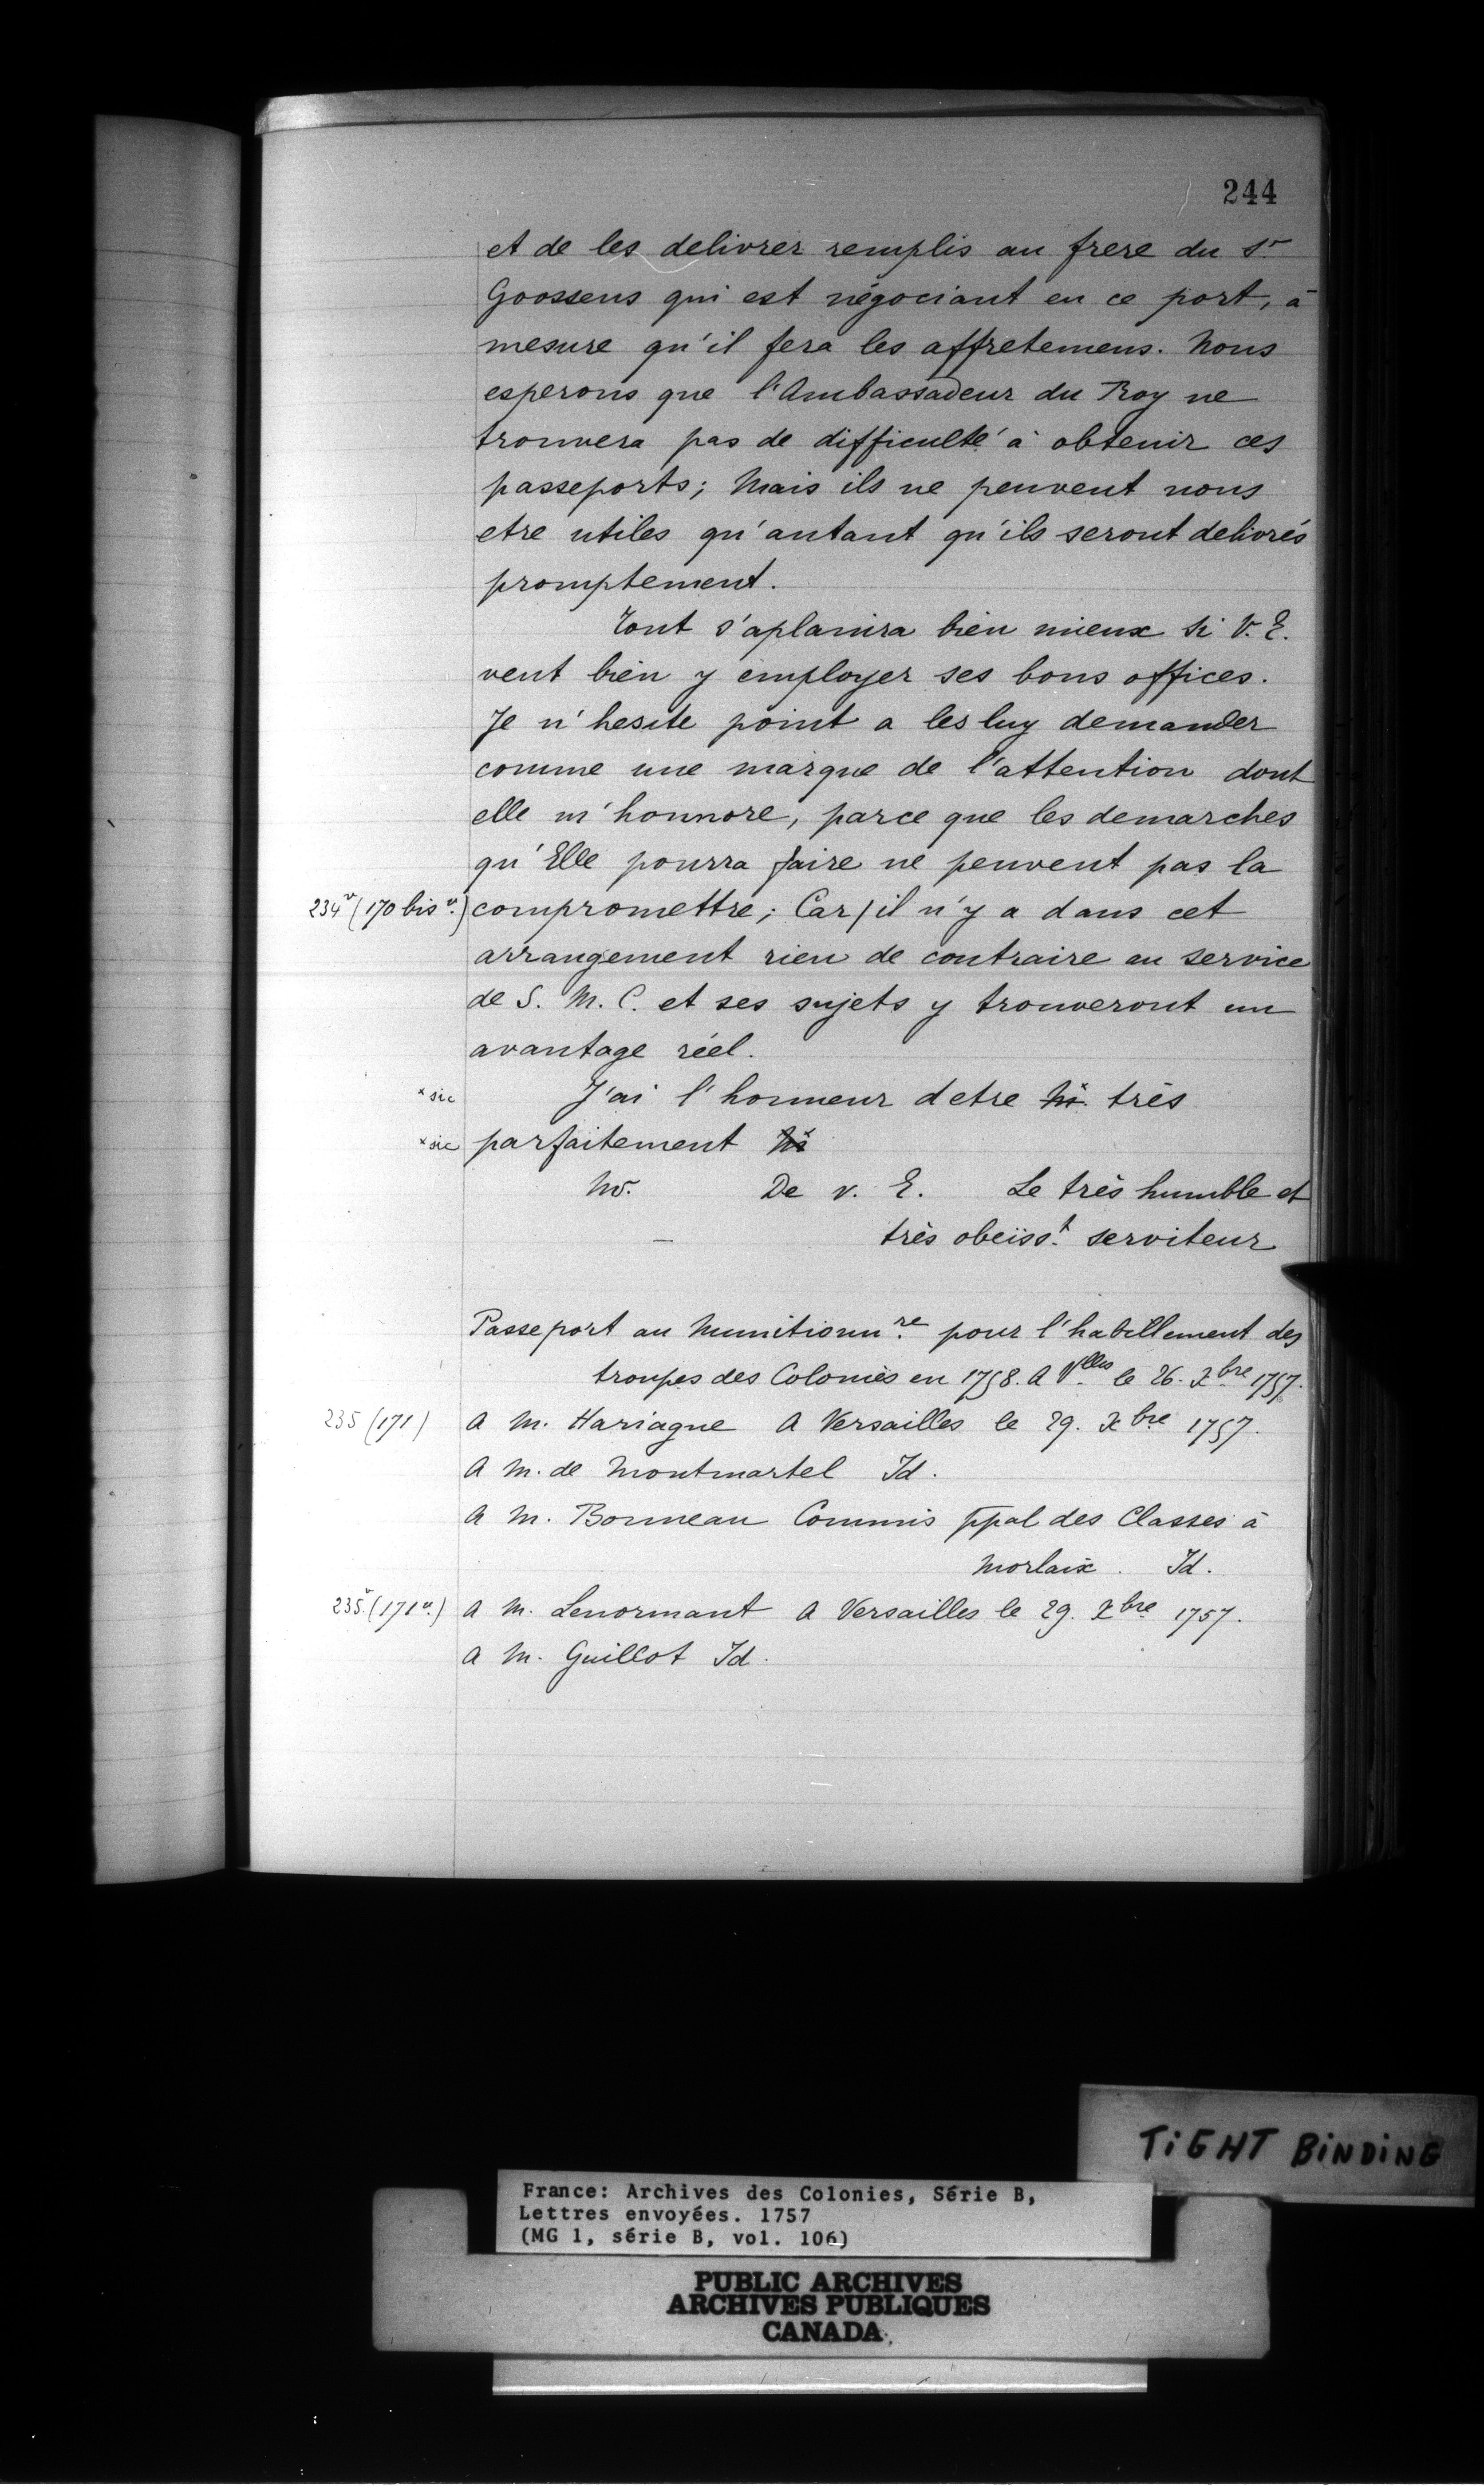 244
et de les delivrer remplis au frere du Sr
Goossens qui est négociant en ce port, à
mesure qu'il fera les affretemens. Nous
esperons que l'Ambassadeur du Roy ne
trouvera pas de difficulté à obtenir ces
passeports; Mais ils ne peuvent nous
etre utiles qu'autant qu'ils seront delivrés
promptement.
Tout s'aplanira bien mieux si V. E.
veut bien y employer ses bons offices.
Je n'hesite point a les luy demander
comme une marque de l'attention dont
elle m'honnore, parce que les demarches
qu'Elle pourra faire ne peuvent pas la
234v (170 bis v.) compromettre; Car/il n'y a dans cet
arrangement rien de contraire au service
de S. M. C. et ses sujets y trouveront un
avantage réel.
x sic J'ai l'honneur d etre très
x sic parfaitement
De v. E. Le très humble et
très obeisst. serviteur
Passeport au Munitionnre. pour l'habillement des
troupes des Colonies en 1758. A Vlles le 26. Xbre 1757.
235 (171) A M. Hariague A Versailles le 29. Xbre 1757.
A M. de Montmartel Id.
A M. Bonneau Commis ppal des Classes à
Morlaix. Id.
235v. (171v.) A M. Lenormant A Versailles le 29. Xbre 1757.
A M. Guillot Id.
TiGHT BiNDiNG
France: Archives des Colonies, Série B,
Lettres envoyées. 1757
(MG 1, série B, vol. 106)
PUBLIC ARCHIVES
ARCHIVES PUBLIQUES
CANADA